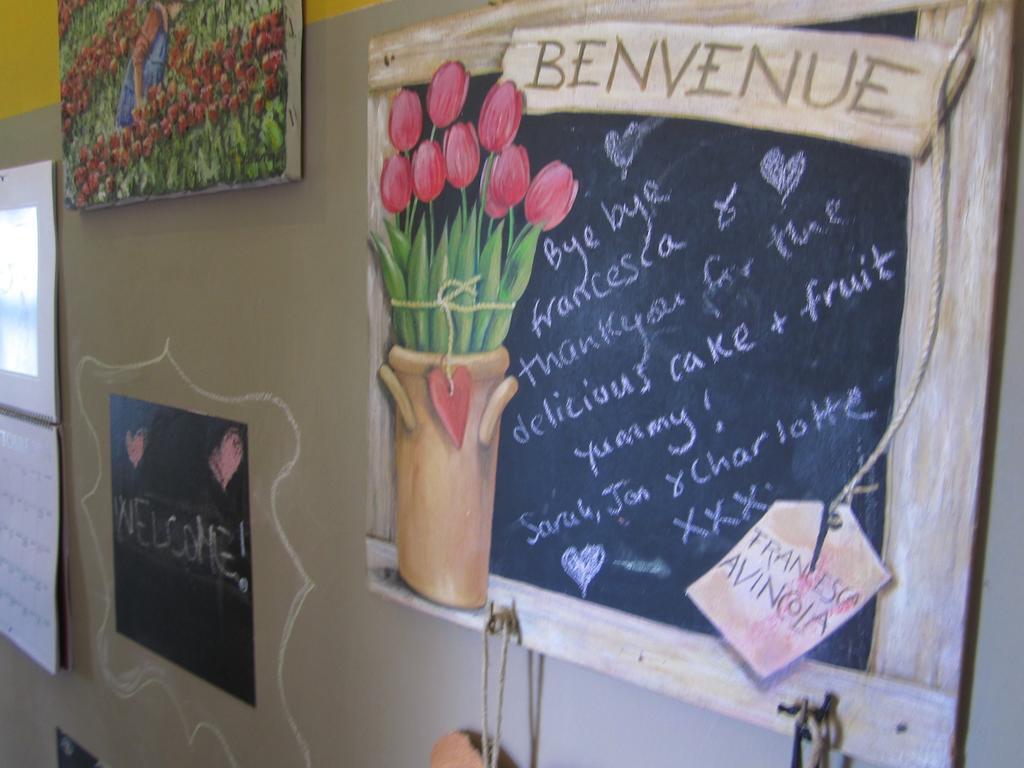 BENVENUE
Bye bye
francesca &
thankyou for the
delicious cake + fruit
yummy!
Sarah, Jon & Charlotte
XXX.
FRANCESCA
AVINCOLA
WELCOME!